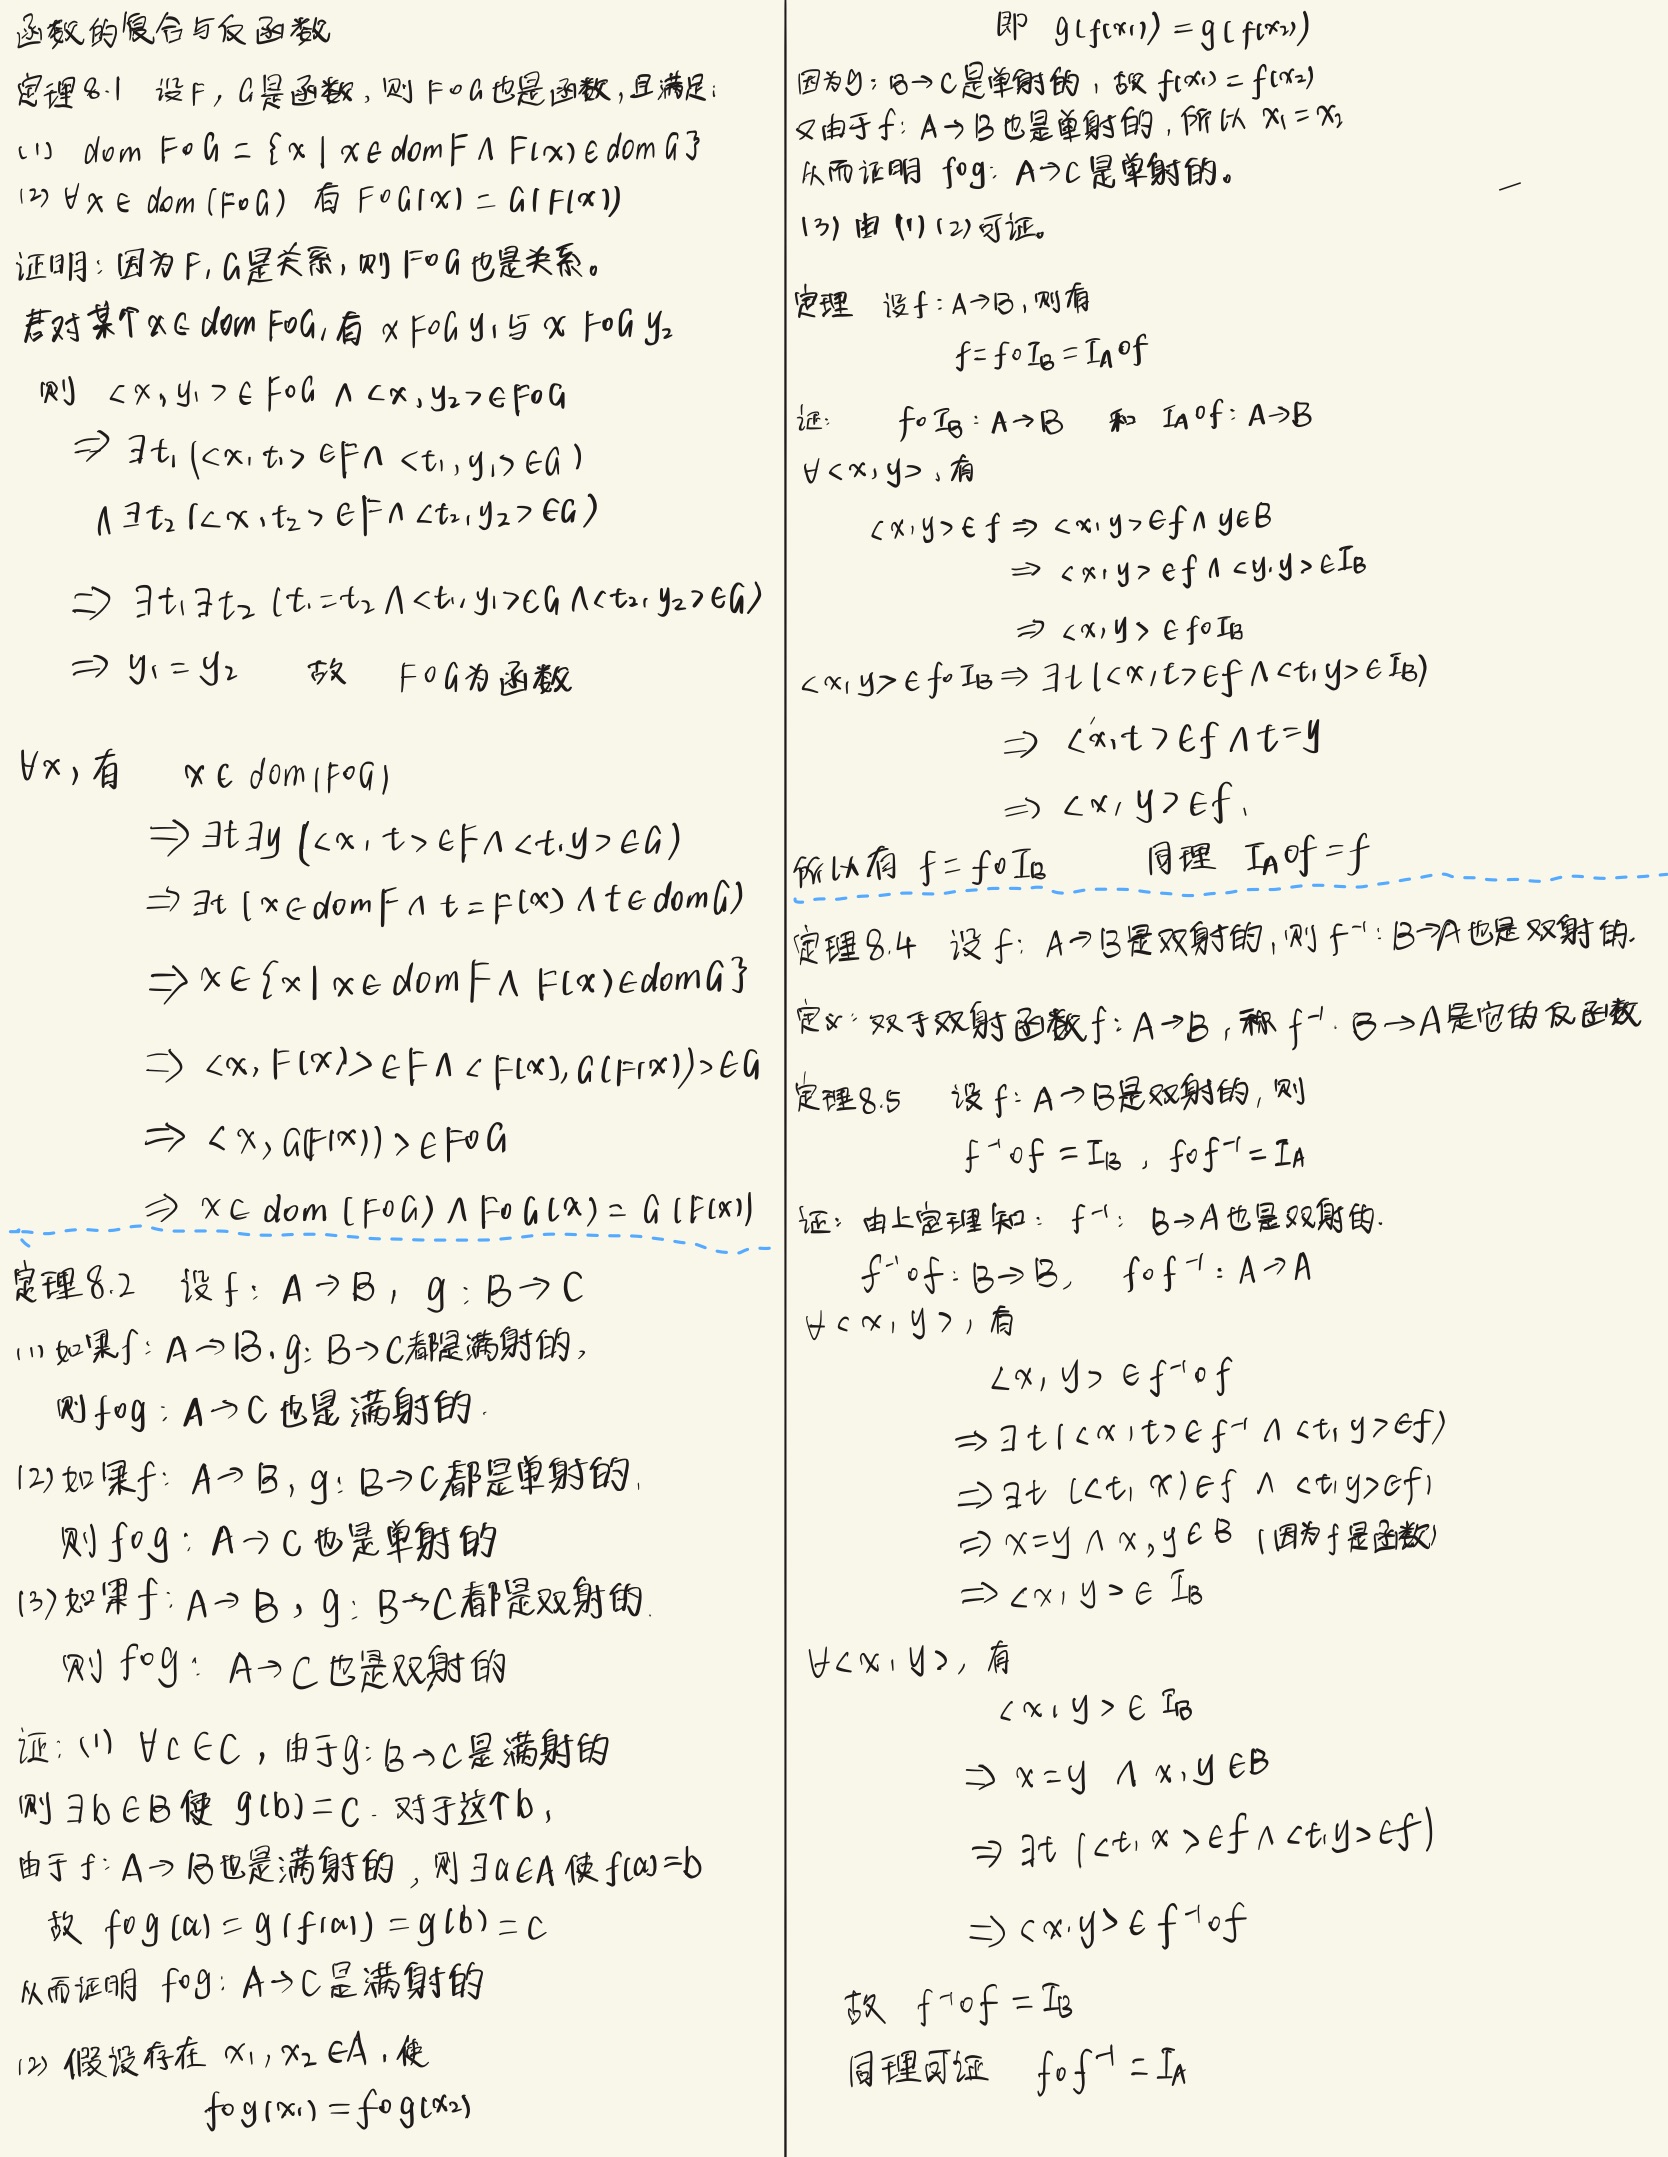 函数的复合与反函数
定理8.1 设F, G是函数, 则 F∘G也是函数, 且满足:
(1) dom F∘G = {x | x∈domF ∧ F(x)∈domG}
(2) ∀x∈dom(F∘G) 有 F∘G(x) = G(F(x))
证明: 因为F, G是关系, 则F∘G也是关系。
若对某个x∈domF∘G, 有 xF∘Gy₁与 xF∘Gy₂
则 <x, y₁>∈F∘G ∧ <x, y₂>∈F∘G
⇒ ∃t₁(<x, t₁>∈F ∧ <t₁, y₁>∈G)
∧ ∃t₂(<x, t₂>∈F ∧ <t₂, y₂>∈G)
⇒ ∃t₁∃t₂(t₁=t₂ ∧ <t₁, y₁>∈G ∧ <t₂, y₂>∈G)
⇒ y₁ = y₂ 故 F∘G为函数
∀x, 有 x∈dom(F∘G)
⇒ ∃t∃y(<x, t>∈F ∧ <t, y>∈G)
⇒ ∃t(x∈domF ∧ t=F(x) ∧ t∈domG)
⇒ x∈{x | x∈domF ∧ F(x)∈domG}
⇒ <x, F(x)>∈F ∧ <F(x), G(F(x))>∈G
⇒ <x, G(F(x))>∈F∘G
⇒ x∈dom(F∘G) ∧ F∘G(x) = G(F(x))
定理8.2 设f: A→B, g: B→C
(1) 如果f: A→B, g: B→C都是满射的,
则f∘g: A→C也是满射的.
(2) 如果f: A→B, g: B→C都是单射的,
则f∘g: A→C也是单射的
(3) 如果f: A→B, g: B→C都是双射的.
则f∘g: A→C也是双射的
证: (1) ∀c∈C, 由于g: B→C是满射的
则∃b∈B使 g(b)=c. 对于这个b,
由于f: A→B也是满射的, 则∃a∈A使f(a)=b
故 f∘g(a) = g(f(a)) = g(b) = c
从而证明 f∘g: A→C是满射的
(2) 假设存在 x₁, x₂∈A, 使
f∘g(x₁) = f∘g(x₂)
即 g(f(x₁)) = g(f(x₂))
因为g: B→C是单射的, 故 f(x₁) = f(x₂)
又由于f: A→B也是单射的, 所以 x₁ = x₂
从而证明 f∘g: A→C是单射的。
(3) 由(1)(2)可证。
定理 设f: A→B, 则有
f = f∘I_B = I_A∘f
证: f∘I_B: A→B 和 I_A∘f: A→B
∀<x, y>, 有
<x, y>∈f ⇒ <x, y>∈f ∧ y∈B
⇒ <x, y>∈f ∧ <y, y>∈I_B
⇒ <x, y>∈f∘I_B
<x, y>∈f∘I_B ⇒ ∃t(<x, t>∈f ∧ <t, y>∈I_B)
⇒ <x, t>∈f ∧ t=y
⇒ <x, y>∈f,
所以有 f = f∘I_B 同理 I_A∘f = f
定理8.4 设f: A→B是双射的, 则f⁻¹: B→A也是双射的.
定义: 双于双射函数f: A→B, 称f⁻¹. B→A是它的反函数
定理8.5 设f: A→B是双射的, 则
f⁻¹∘f = I_B, f∘f⁻¹ = I_A
证: 由上定理知: f⁻¹: B→A也是双射的.
f⁻¹∘f: B→B, f∘f⁻¹: A→A
∀<x, y>, 有
<x, y>∈f⁻¹∘f
⇒ ∃t(<x, t>∈f⁻¹ ∧ <t, y>∈f)
⇒ ∃t(<t, x)∈f ∧ <t, y>∈f)
⇒ x=y ∧ x, y∈B (因为f是函数)
⇒ <x, y>∈I_B
∀<x, y>, 有
<x, y>∈I_B
⇒ x=y ∧ x, y∈B
⇒ ∃t(<t, x>∈f ∧ <t, y>∈f)
⇒ <x, y>∈f⁻¹∘f
故 f⁻¹∘f = I_B
同理可证 f∘f⁻¹ = I_A